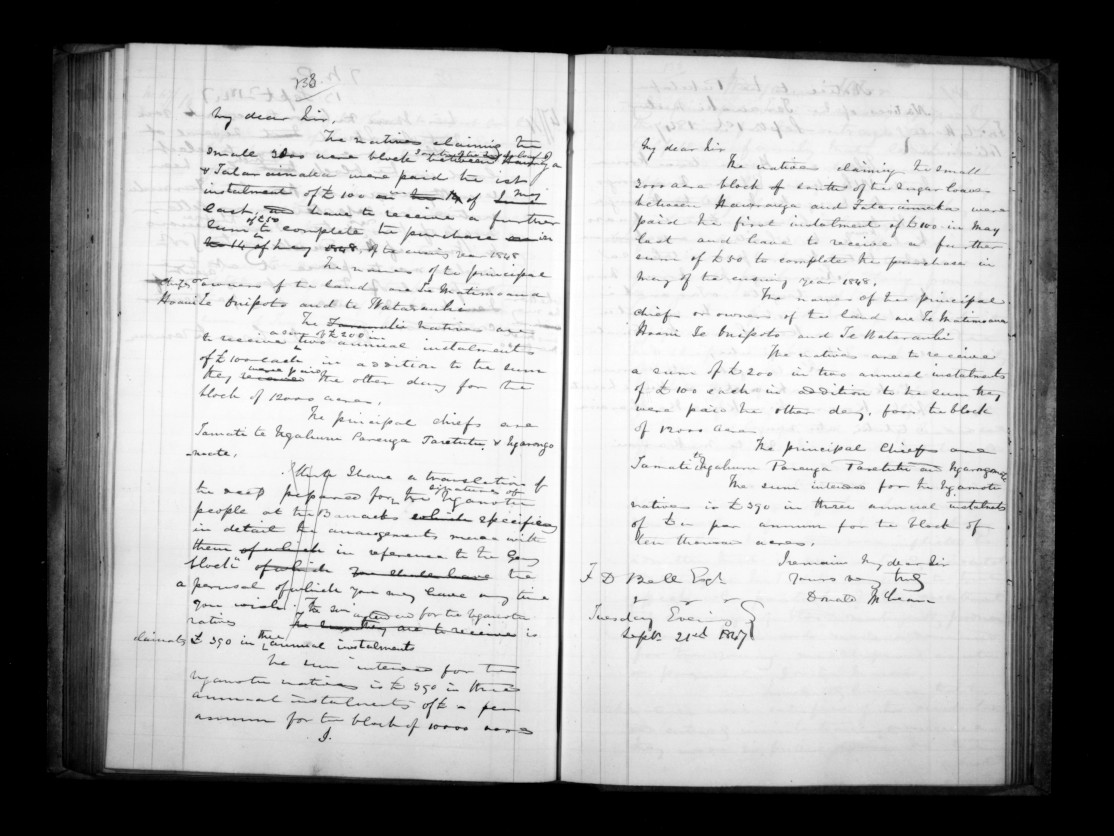 238
My dear Sir,
The natives claiming the
small acre block south of the between a
& Tataraimaka were paid the 1st
instalment of £100 in of 1 May
last, and have to receive a further
sum of £50 to complete the purchase in
14 of May 1848, of the ensuing year 1848
The names of the principal
chiefs or owners of the land are Te Matimoana
Hoani Te Onipoto and te Watarauhi
The natives are
to receive a sum of £200 in two annual instalments
of £100 each in addition to the sum
they were paid the other day for the
block of 12000 acres.
The principal chiefs are
Tamati te Ngahuru Parenga Taretutu & Ngarongo
I have a translation of
the deed prepared for the signatures of Ngamotu
people at the Barracks which specifies
in detail the arrangements made with
them of which in reference to the Grey
block" of which the
a perusal of which you may have any time
you wish. The for the Ngamotu
natives The sum they are to receive is
claimants £390 in three annual instalments
The sum intended for the
Ngamotu natives is £390 in three
annual instalments of £ a per
annum for the block of 10000 acres
I.
My dear Sir
The natives claiming the small
acre block of south of the Sugar loaves
between and Tataraimaka were
paid the first instalment of £100 in May
last and have to receive a further
sum of £50 to complete the purchase in
May of the ensuing year 1848.
The names of the principal
chiefs or owners of the land are Te Matimoana
Hoani Te Onipoto and Te Watarauhi
The natives are to receive
a sum of £200 in two annual instalments
of £100 each in addition to the sum they
were paid the other day, for the block
of 12000 acres
The principal Chiefs are
Tamati te Ngahuru Parenga Taretutu and
The sum intended for the Ngamotu
natives is £390 in three annual instalments
of £ per annum for the block of
ten thousand acres.
I remain My dear Sir
Yours very truly
F D Bell Esqr
Donald McLean
Tuesday Evening
Septr 21st 1847